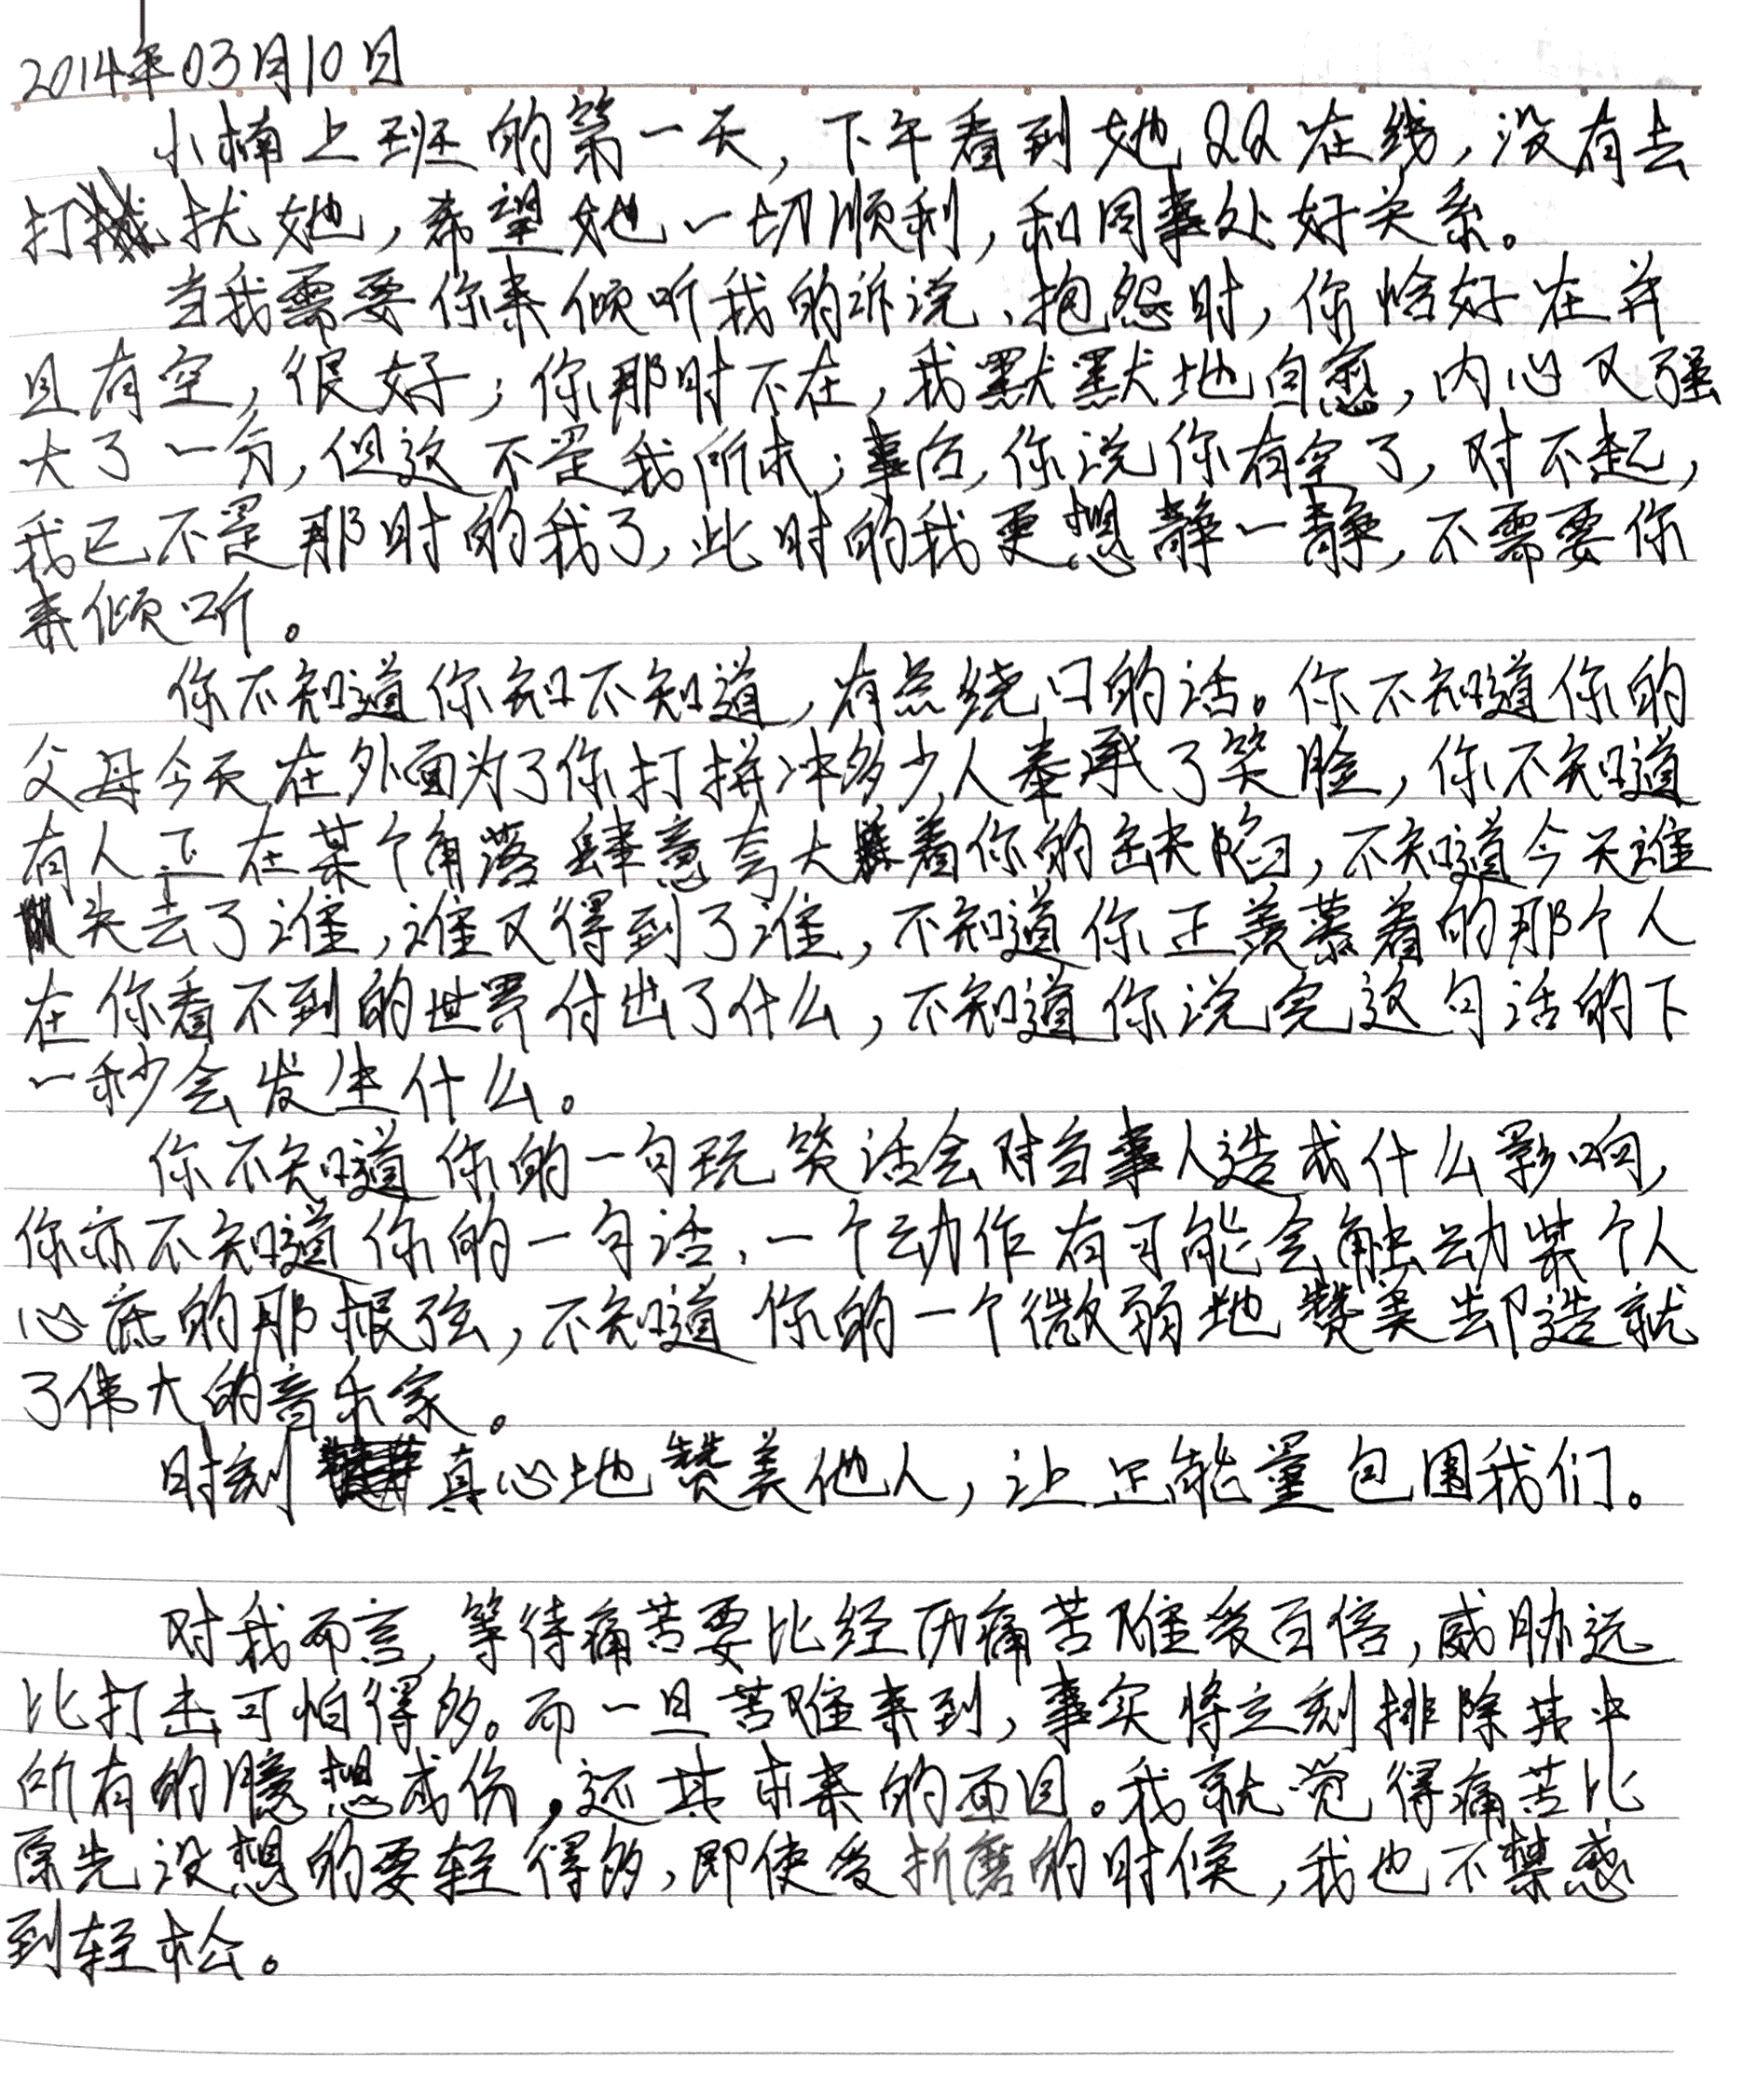 2014年03月10日
小楠上班的第一天，下午看到她QQ在线，没有去
打扰她，希望她一切顺利，和同事处好关系。
当我需要你来倾听我的诉说、抱怨时，你恰好在并
且有空，很好；你那时不在，我默默地自愈，内心又强
大了一分，但这不是我所求；事后，你说你有空了，对不起，
我已不是那时的我了，此时的我更想静一静，不需要你
来倾听。
你不知道你知不知道，有点绕口的话。你不知道你的
父母今天在外面为了你打拼冲多少人奉承了笑脸，你不知道
有人正在某个角落肆意夸大着你的缺陷，不知道今天谁
失去了谁，谁又得到了谁，不知道你正羡慕着的那个人
在你看不到的世界付出了什么，不知道你说完这句话的下
一秒会发生什么。
你不知道你的一句玩笑话会对当事人造成什么影响，
你亦不知道你的一句话、一个动作有可能会触动某个人
心底的那根弦，不知道你的一个微弱地赞美却造就
了伟大的音乐家。
时刻真心地赞美他人，让正能量包围我们。
对我而言，等待痛苦要比经历痛苦难受百倍，威胁远
比打击可怕得多。而一旦苦难来到，事实将立刻排除其中
所有的臆想成份，还其本来的面目。我就觉得痛苦比
原先设想的要轻得多，即使受折磨的时候，我也不禁感
到轻松。